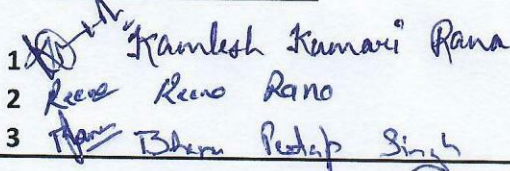 1 Kamlesh Kumari Rana
2 Reena Reena Rano
3 Bhanu Pratap Singh